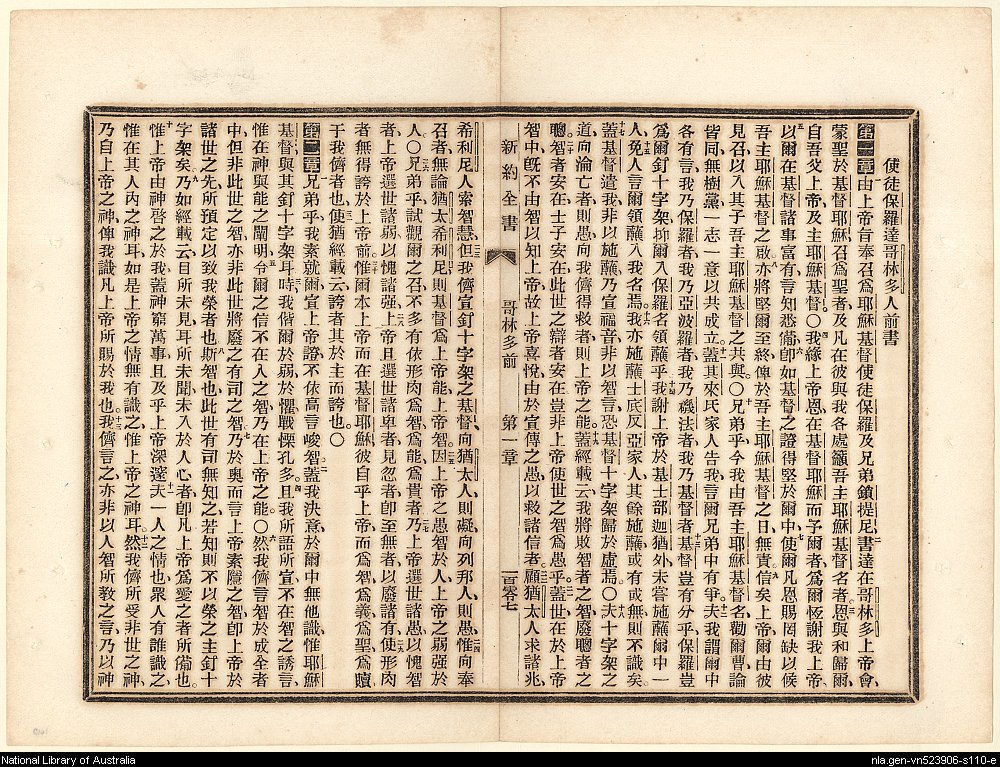 使徒保羅達哥林多人前書
第一章由上帝旨奉召爲耶穌基督使徒保羅及兄弟鎖提尼書達在哥林多上帝會
蒙聖於基督耶穌召爲聖者及凡在彼與我各處籲吾主耶穌基督名者恩與和歸爾
自吾父上帝及主耶穌基督〇我緣上帝恩在基督耶穌而予爾者爲爾恆謝我上帝
以爾在基督諸事富有言知悉備卽如基督之證得堅於爾中使爾凡恩賜罔缺以候
吾主耶穌基督之啟亦將堅爾至終俾於吾主耶穌基督之日無責信矣上帝爾由彼
見召以入其子吾主耶穌基督之共與〇兄弟乎今我由吾主耶穌基督名勸爾曹論
皆同無樹黨一志一意以共成立蓋其來氏家人告我言爾兄弟中有爭夫我謂爾中
各有言我乃保羅者我乃亞波羅者我乃磯法者我乃基督者基督豈有分乎保羅豈
爲爾釘十字架抑爾入保羅名領蘸乎我謝上帝於基士部迦猶外未嘗施蘸爾中一
人免人言爾領蘸入我名焉我亦施蘸士氐反亞家人其餘施蘸或有或無則不識矣
蓋基督遣我非以施蘸乃宣福音非以智言恐基督十字架歸於虛焉〇夫十字架之
道向淪亡者則愚向我儕得救者則上帝之能蓋經載云我將敗智者之智廢聰者之
聰智者安在士子安在此世之辯者安在豈非上帝使世之智爲愚乎蓋世在於上帝
智中旣不由智以知上帝故上帝喜悅由於宣傳之愚以救諸信者顧猶太人求諸兆
新約全書 哥林多前 第一章 一百零七
希利尼人索智慧但我儕宣釘十字架之基督向猶太人則礙向列邦人則愚惟向奉
召者無論猶太希利尼則基督爲上帝能上帝智因上帝之愚智於人上帝之弱强於
人〇兄弟乎試觀爾之召不多有依形肉爲智爲能爲貴者乃上帝選世諸愚以愧智
者上帝選世諸弱以愧諸强上帝且選世諸卑者見忽者卽至無者以廢諸有使形肉
者無得誇於上帝前惟爾本上帝而在基督耶穌彼自乎上帝而爲智爲義爲聖爲贖
于我儕者也使猶經載云誇者其於主而誇也〇
第二章兄弟乎我素就爾宣上帝證不依高言峻智蓋我決意於爾中無他識惟耶穌
基督與其釘十字架耳時我偕爾於弱於懼戰慄孔多且我所語所宣不在智之誘言
惟在神與能之闡明令爾之信不在人之智乃在上帝之能〇然我儕言智於成全者
中但非此世之智亦非此世將廢之有司之智乃於奧而言上帝素隱之智卽上帝於
諸世之先所預定以致我榮者也斯智也此世有司無知之若知則不以榮之主釘十
字架矣乃如經載云目所未見耳所未聞未入於人心者卽凡上帝爲愛之者所備也
惟上帝由神啓之於我蓋神窮萬事且及乎上帝深邃夫一人之情也衆人有誰識之
惟在其人內之神耳如是上帝之情無有識之惟上帝之神耳然我儕所受非世之神
乃自上帝之神俾我識凡上帝所賜於我也我儕言之亦非以人智所敎之言乃以神
National Library of Australia
nla.gen-vn523906-s110-e